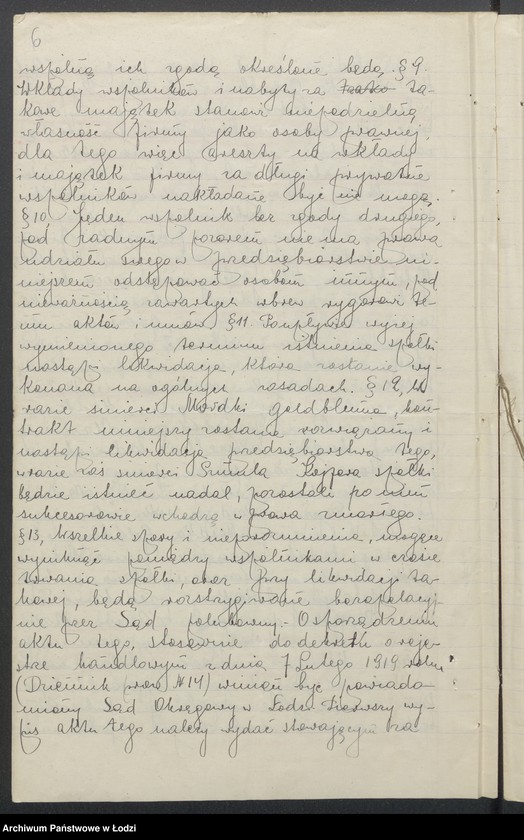 6
wspólną ich zgodą określone będą. § 9
Wkłady wspólników i nabyty za ta-
kowe majątek stanowi niepodzielną
własność firmy jako osoby prawnej,
dla tego więc areszty na wkłady
i majątek firmy za długi prywatne
wspólników nakładane być nie mogą.
§ 10, Jeden wspólnik bez zgody drugiego,
pod żadnym pozorem nie ma prawa
udziału swego w przedsiębiorstwie ni-
niejszem odstępować osobom innym, pod
nieważnością zawartych wbrew rygorowi te-
mu aktów i umów. § 11 Po upływie wyżej
wymienionego terminu istnienia spółki
nastąpi likwidacja, która zostanie wy-
konana na ogólnych zasadach. § 12, W
razie śmierci Mordki Goldbluma, kon-
trakt niniejszy zostanie rozwiązany i
nastąpi likwidacja przedsiębiorstwa tego,
w razie zaś śmierci Szmula spółka
będzie istnieć nadal, pozostali po nim
sukcesorowie wchodzą w prawa zmarłego.
§ 13, Wszelkie spory i nieporozumienia, mogące
wyniknąć pomiędzy wspólnikami w czasie
trwania spółki, oraz przy likwidacji ta-
kowej, będą rozstrzygiwane bezapelacyj-
nie przez Sąd polubowny.- O sporządzeniu
aktu tego, stosownie do dekretu o reje-
strze handlowym z dnia 7 Lutego 1919 roku
(Dziennik praw № 14) winien być powiado-
miony Sąd Okręgowy w Łodzi. Pierwszy wy-
pis aktu tego należy wydać stawającym za
Archiwum Państwowe w Łodzi